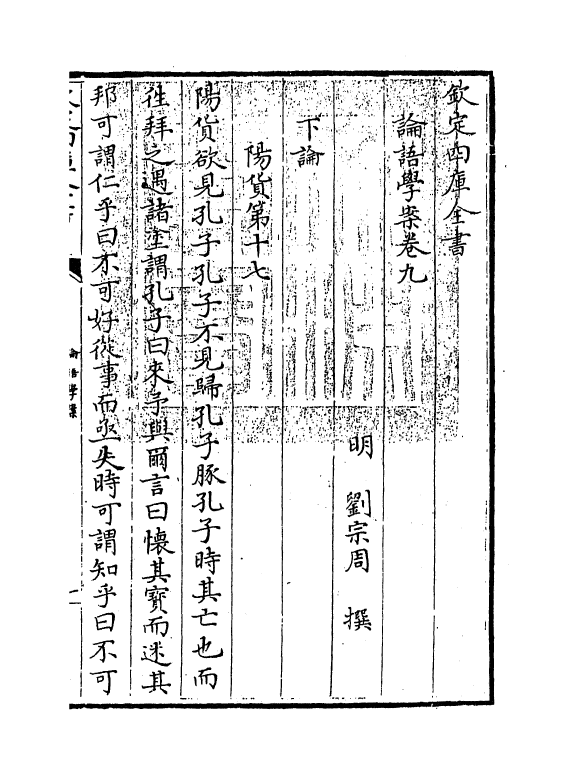 欽定四庫全書
論語學案卷九
明 劉宗周 撰
下論
陽貨第十七
陽貨欲見孔子孔子不見歸孔子豚孔子時其亡也而
徃拜之遇諸塗謂孔子曰來予與爾言曰懷其寶而迷其
邦可謂仁乎曰不可好從事而亟失時可謂知乎曰不可
論語學案